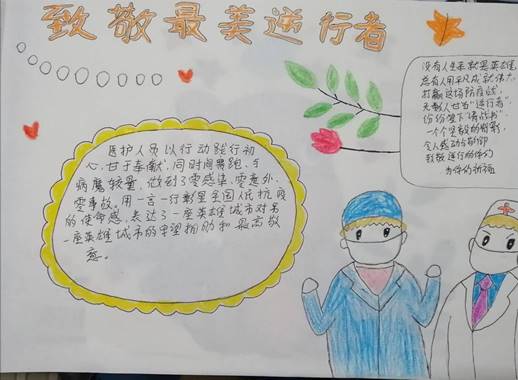 致敬最美逆行者
没有人生来就是英雄,
总有人用平凡成就伟大
打赢这场防疫战,
无数人甘当"逆行者",
纷纷签下"请战书"
一个个坚毅的背影
令人感动与敬仰
致敬逆行的你们
为你们祈福
医护人员以行动践行初
心,甘于奉献,同时间赛跑,与
病魔较量,做到了零感染、零意外、
零事故。用一言一行彰显全国人民抗疫
的使命感,表达了一座英雄城市对另
一座英雄城市的守望相助和最高敬
意。